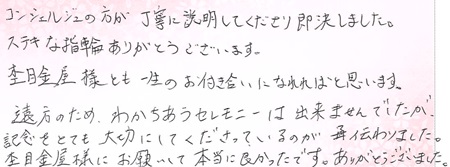 コンシェルジュの方が丁寧に説明してくださり即決しました。
ステキな指輪ありがとうございます。
杢目金屋様とも一生のお付き合いになれればと思います。
遠方のため、わかちあうセレモニーは出来ませんでしたが、
記念をとても大切にしてくださっているのが再伝わりました。
杢目金屋様にお願いして本当に良かったです。ありがとうございました。